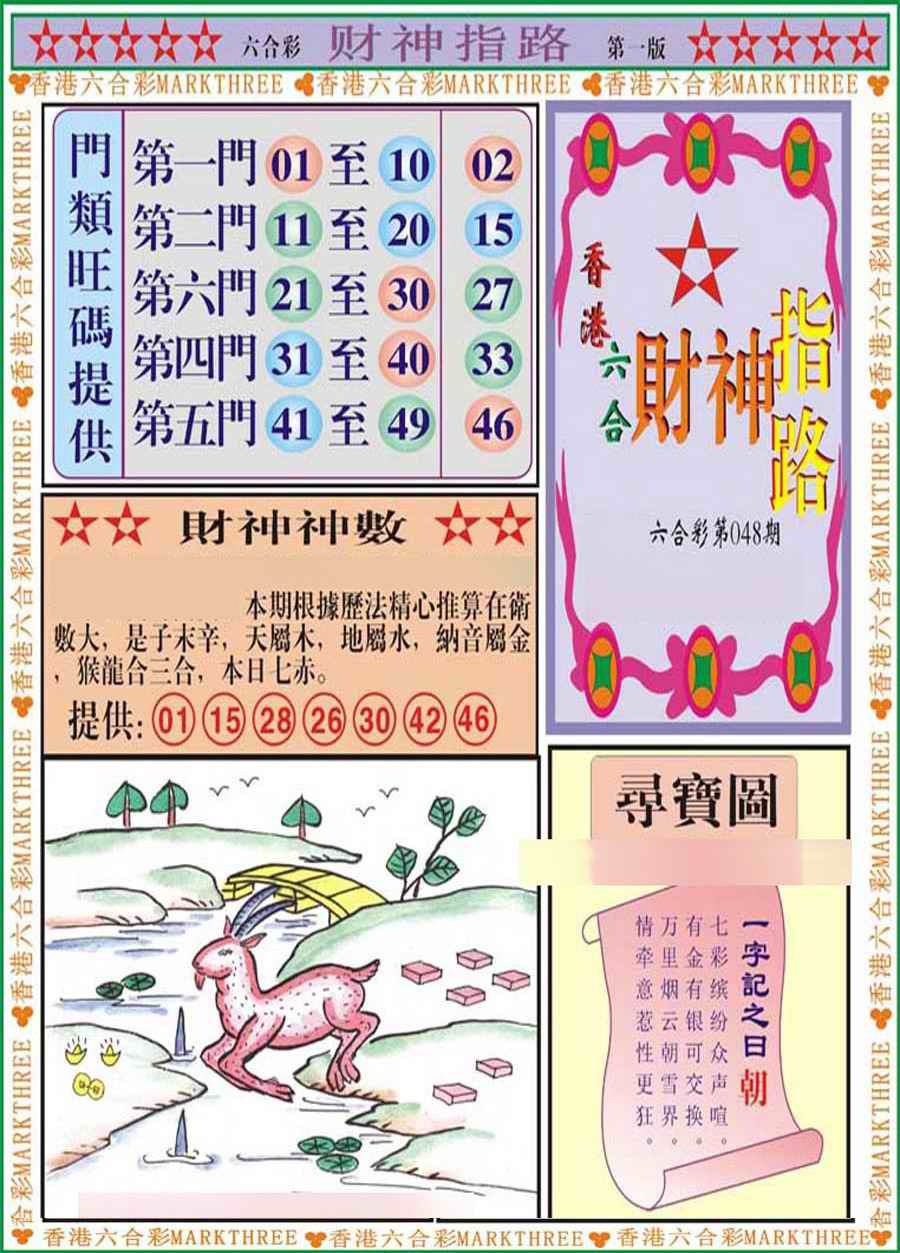 六合彩 财神指路 第一版
香港六合彩MARKTHREE 香港六合彩MARKTHREE 香港六合彩MARKTHREE
香港六合彩MARKTHREE 香港六合彩MARKTHREE 香港六合彩MARKTHREE
門類旺碼提供
第一門 01 至 10 02
第二門 11 至 20 15
第六門 21 至 30 27
第四門 31 至 40 33
第五門 41 至 49 46
香港六合
財神指路
六合彩第048期
財神神數
本期根據歷法精心推算在衛
數大，是子末辛，天屬木，地屬水，納音屬金
，猴龍合三合，本日七赤。
提供: 01 15 28 26 30 42 46
尋寶圖
一字記之日 朝
七彩缤纷众声喧。
有金有银可交换。
万里烟云朝雪界。
情牵意惹性更狂。
香港六合彩MARKTHREE 香港六合彩MARKTHREE 香港六合彩MARKTHREE
香港六合彩MARKTHREE 香港六合彩MARKTHREE 香港六合彩MARKTHREE